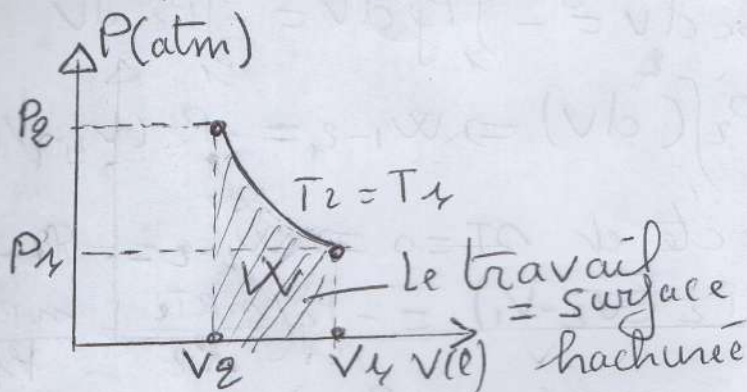 P(atm)
P2
T2 = T1
P1
W
Le travail
= surface
hachurée
V2 V1 V(l)